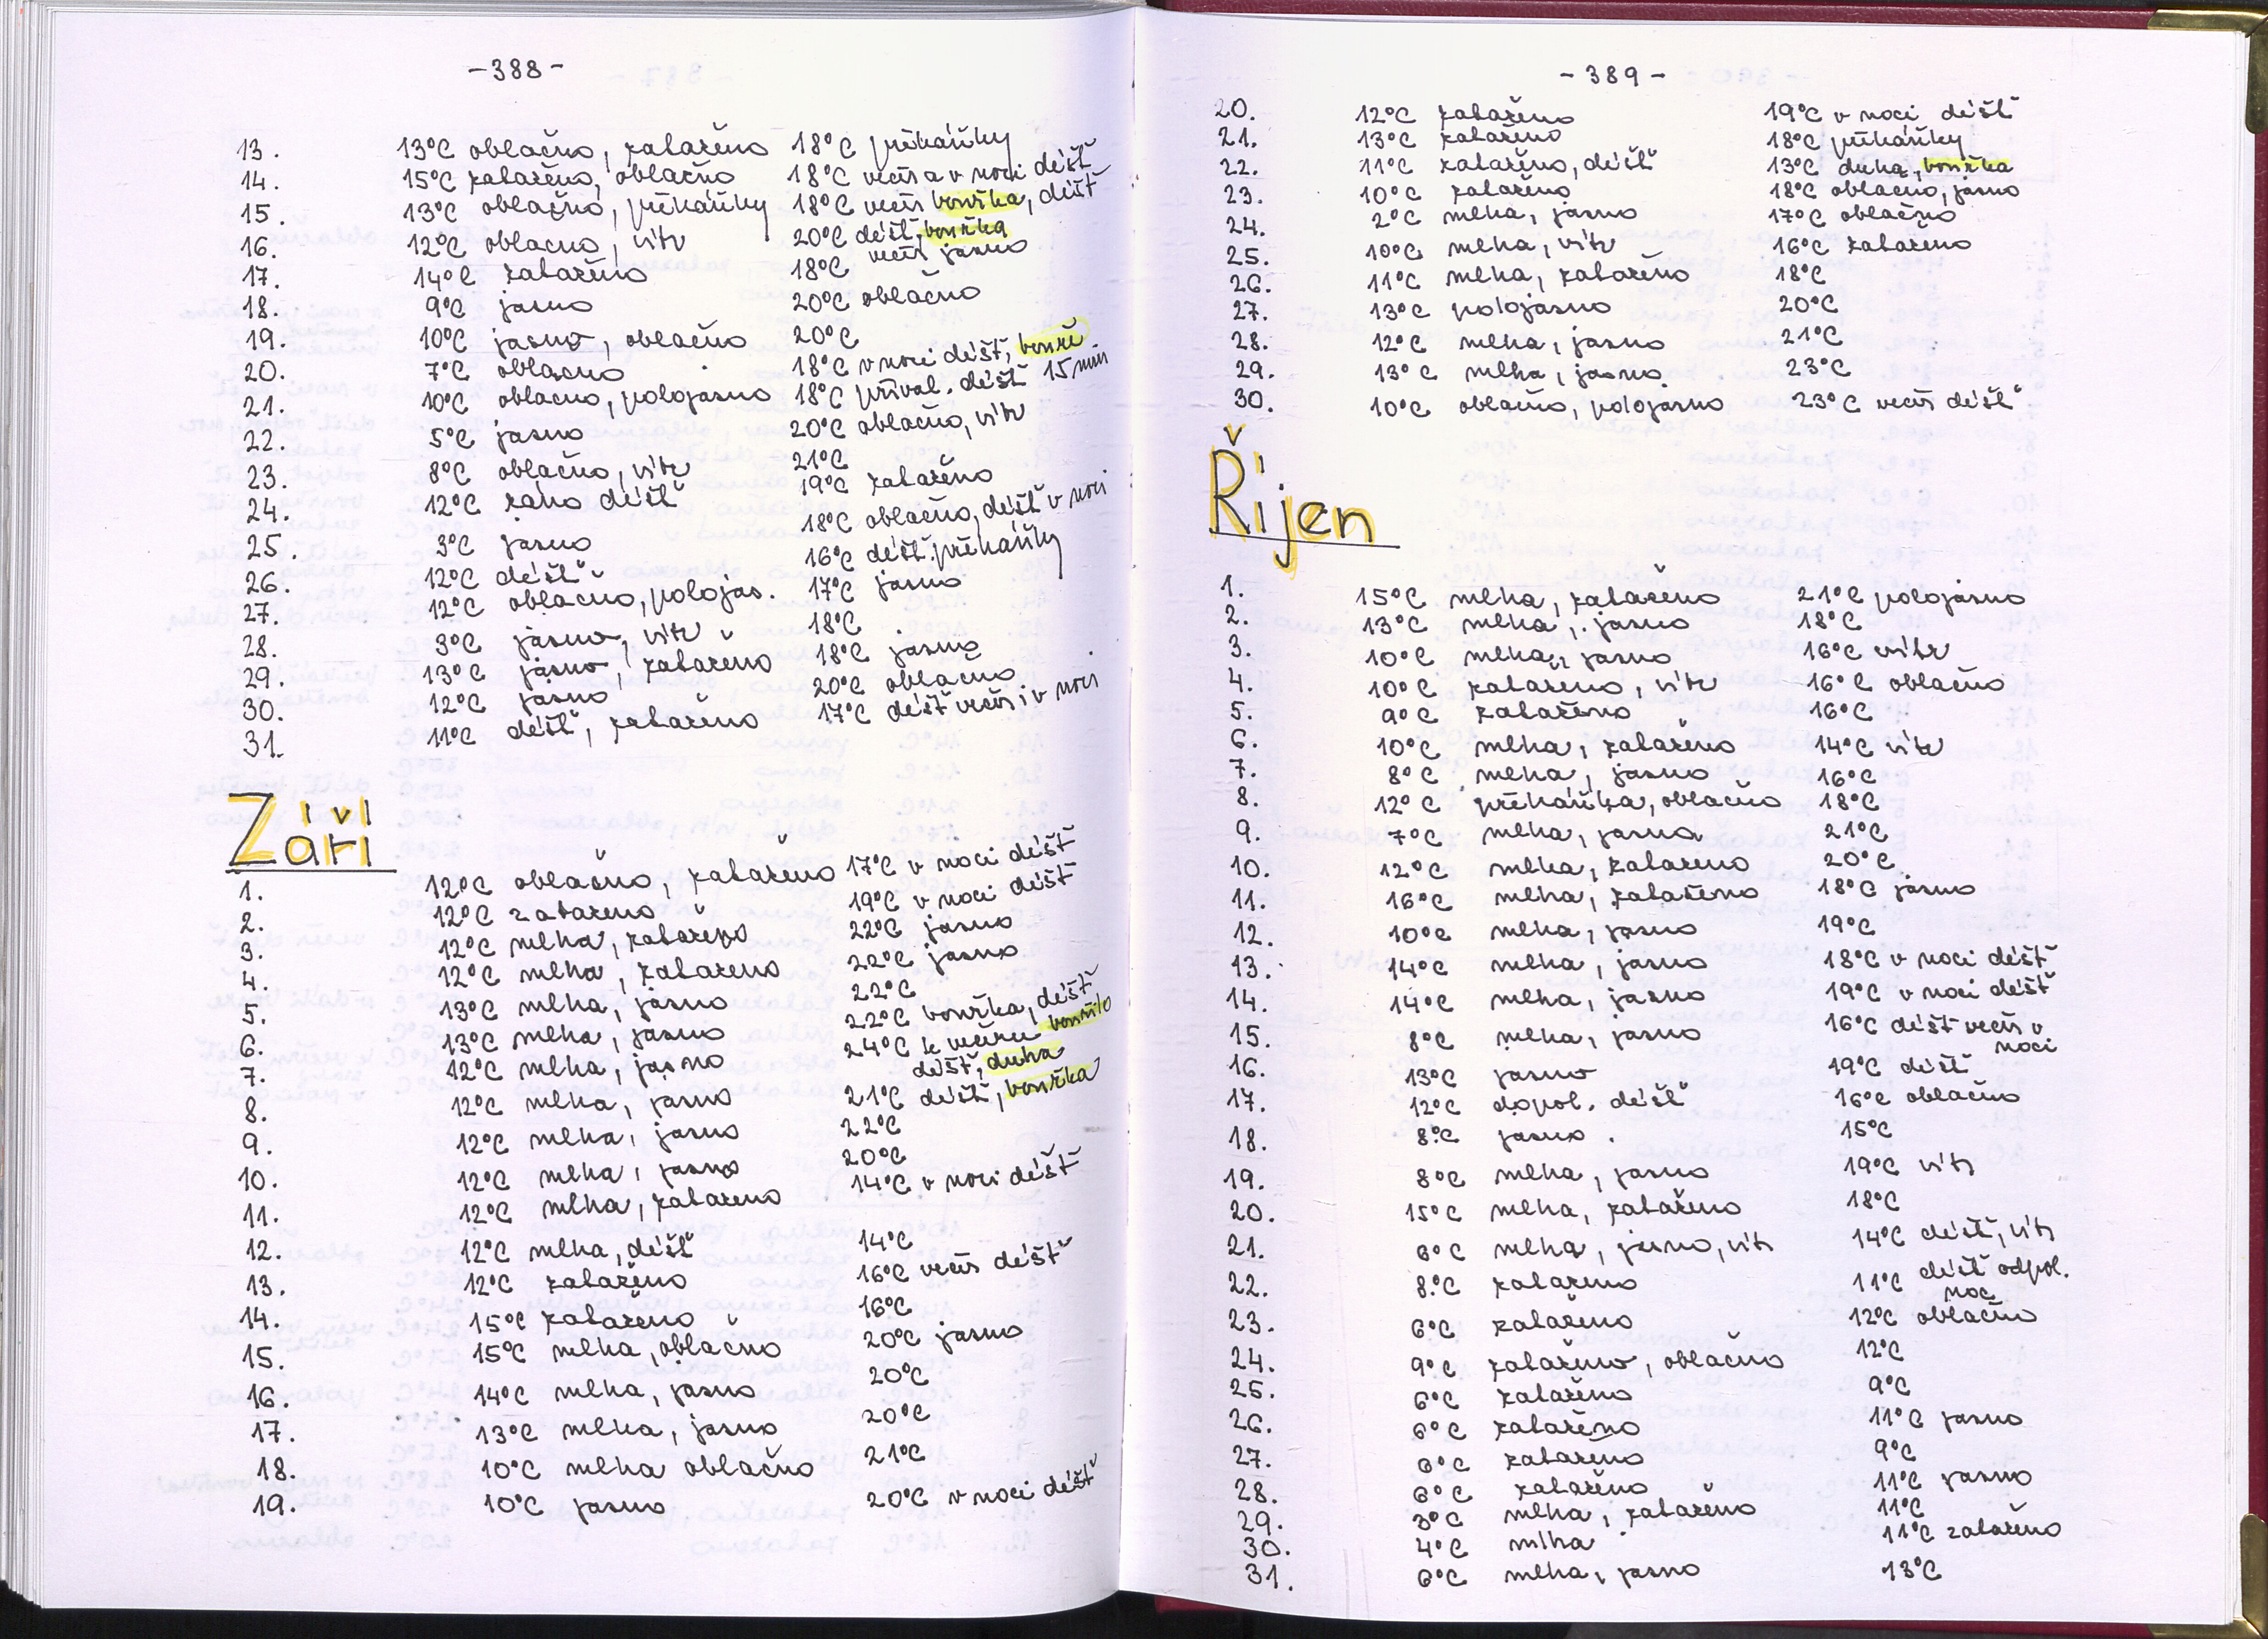 -388-
13. 13°C oblačno, zataženo 18°C přeháňky
14. 15°C zataženo, oblačno 18°C večer a v noci déšť
15. 13°C oblačno, přeháňky 18°C večer bouřka, déšť
16. 12°C oblačno, vítr 20°C déšť, bouřka
17. 14°C zataženo 18°C večer jasno
18. 9°C jasno 20°C oblačno
19. 10°C jasno, oblačno 20°C
20. 7°C oblačno 18°C v noci déšť, bouře
21. 10°C oblačno, polojasno 18°C příval. déšť 15 min
22. 5°C jasno 20°C oblačno, vítr
23. 8°C oblačno, vítr 21°C
24. 12°C ráno déšť 19°C zataženo
25. 3°C jasno 18°C oblačno, déšť v noci
26. 12°C déšť 16°C déšť. přeháňky
27. 12°C oblačno, polojas. 17°C jasno
28. 3°C jasno, vítr 18°C
29. 13°C jasno, zataženo 18°C jasno
30. 12°C jasno 20°C oblačno
31. 11°C déšť, zataženo 17°C déšť večer i v noci
Září
1. 12°C oblačno, zataženo 17°C v noci déšť
2. 12°C zataženo 19°C v noci déšť
3. 12°C mlha, zataženo 22°C jasno
4. 12°C mlha, zataženo 22°C jasno
5. 13°C mlha, jasno 22°C
6. 13°C mlha, jasno 22°C bouřka, déšť
7. 12°C mlha, jasno 24°C k večeru bouřilo
déšť, duha
8. 12°C mlha, jasno 21°C déšť, bouřka
9. 12°C mlha, jasno 22°C
10. 12°C mlha, jasno 20°C
11. 12°C mlha, zataženo 14°C v noci déšť
12. 12°C mlha, déšť 14°C
13. 12°C zataženo 16°C večer déšť
14. 15°C zataženo 16°C
15. 15°C mlha, oblačno 20°C jasno
16. 14°C mlha, jasno 20°C
17. 13°C mlha, jasno 20°C
18. 10°C mlha oblačno 21°C
19. 10°C jasno 20°C v noci déšť
-389-
20. 12°C zataženo 19°C v noci déšť
21. 13°C zataženo 18°C přeháňky
22. 11°C zataženo, déšť 13°C duha, bouřka
23. 10°C zataženo 18°C oblačno, jasno
24. 2°C mlha, jasno 17°C oblačno
25. 10°C mlha, vítr 16°C zataženo
26. 11°C mlha, zataženo 18°C
27. 13°C polojasno 20°C
28. 12°C mlha, jasno 21°C
29. 13°C mlha, jasno 23°C
30. 10°C oblačno, polojasno 23°C večer déšť
Říjen
1. 15°C mlha, zataženo 21°C polojasno
2. 13°C mlha, jasno 18°C
3. 10°C mlha, jasno 16°C vítr
4. 10°C zataženo, vítr 16°C oblačno
5. 9°C zataženo 16°C
6. 10°C mlha, zataženo 14°C vítr
7. 8°C mlha, jasno 16°C
8. 12°C přeháňka, oblačno 18°C
9. 7°C mlha, jasno 21°C
10. 12°C mlha, zataženo 20°C
11. 16°C mlha, zataženo 18°C jasno
12. 10°C mlha, jasno 19°C
13. 14°C mlha, jasno 18°C v noci déšť
14. 14°C mlha, jasno 19°C v noci déšť
15. 8°C mlha, jasno 16°C déšť večer v
noci
16. 13°C jasno 19°C déšť
17. 12°C dopol. déšť 16°C oblačno
18. 8°C jasno 15°C
19. 8°C mlha, jasno 19°C vítr
20. 15°C mlha, zataženo 18°C
21. 6°C mlha, jasno, vítr 14°C déšť, vítr
22. 8°C zataženo 11°C déšť odpol.
noc
23. 6°C zataženo 12°C oblačno
24. 9°C zataženo, oblačno 12°C
25. 6°C zataženo 9°C
26. 6°C zataženo 11°C jasno
27. 6°C zataženo 9°C
28. 6°C zataženo 11°C jasno
29. 3°C mlha, zataženo 11°C
30. 4°C mlha 11°C zataženo
31. 6°C mlha, jasno 13°C